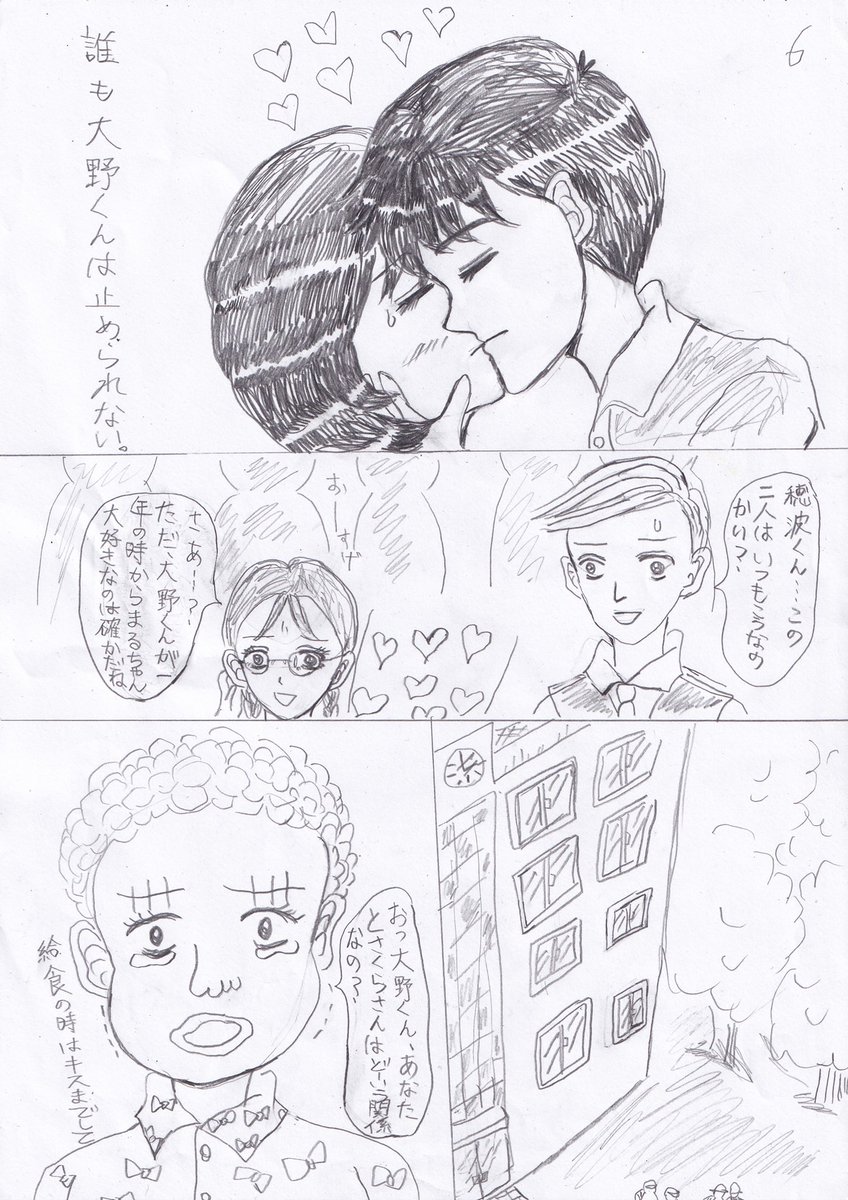 6
誰も大野くんは止められない。
穂波くん…この
二人はいつもこうなの
かい?
おーすげ
さあー?
ただ、大野くんが一
年の時からまるちゃん
大好きなのは確かだね
おっ大野くん、あなた
とさくらさんはどーいう関係
なの?
給食の時はキスまでして